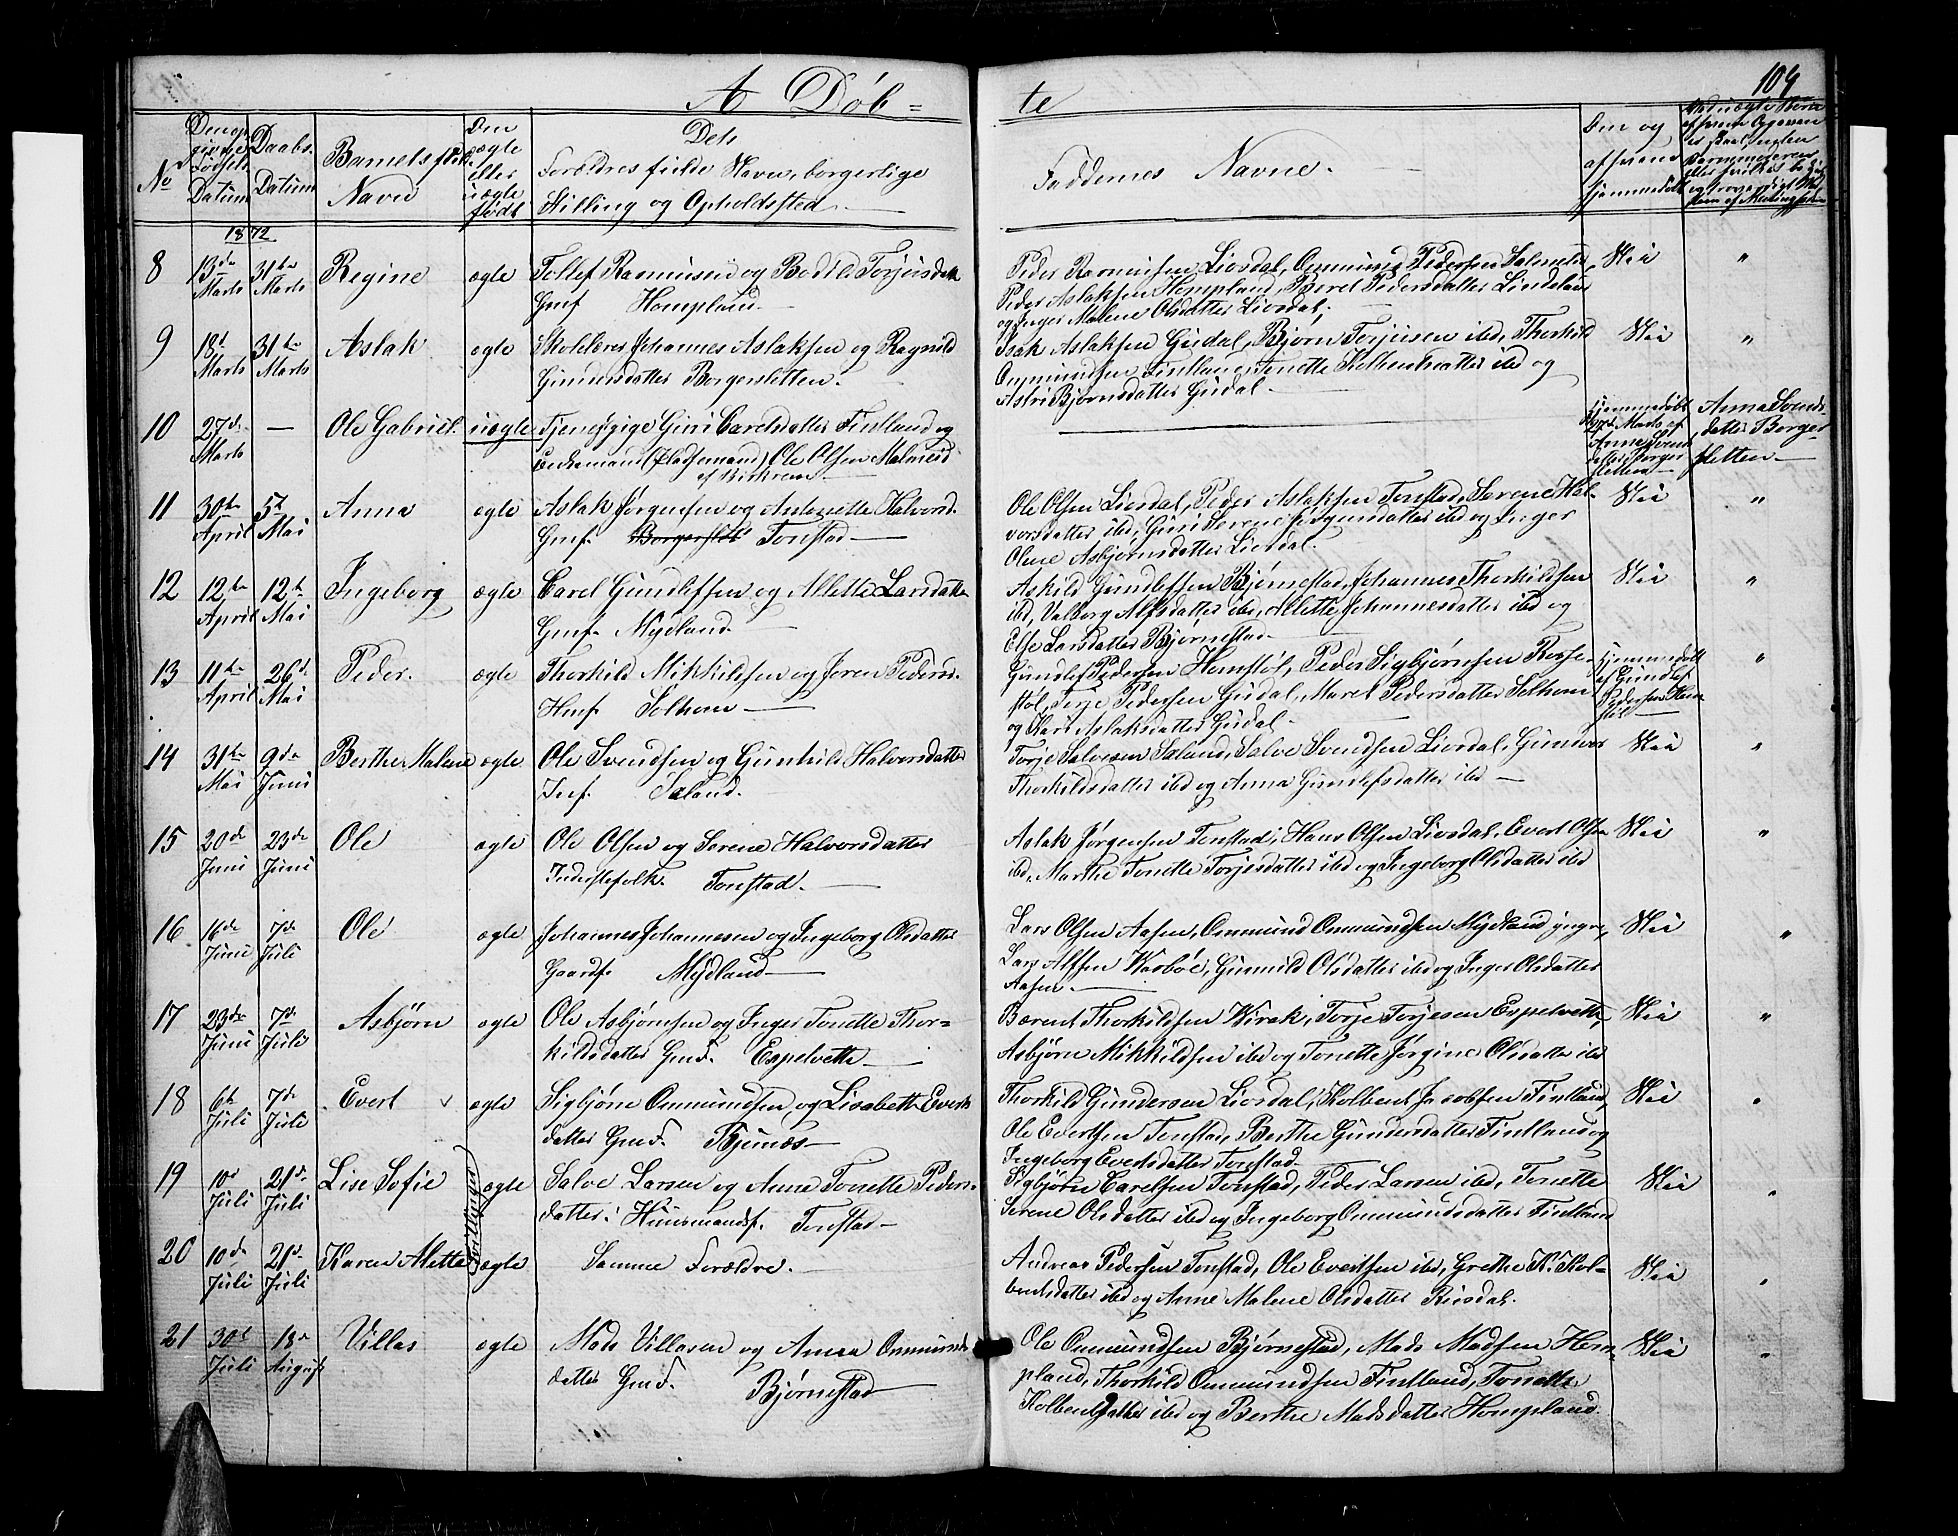 A Døb-te
104
No
Den op-
givne
Fødsels
Datum
Daabs-
Datum
Barnets
Navn
Om
ægte
eller
uægte
født
Dets
Forældres fulde Navn, borgerlige
Stilling og Opholdssted.
Faddernes Navne.
Om og
af hvem
hjemmedøbt
1872
8 13de Marts 31te Marts Regine ægte Tollef Rasmussen og Bodil Torjusdatt.
Gmf Hompland.
Peder Rasmusen Liosdal, Ommund Pedersen
Peder Aslaksen Hompland, Beret Pedersdatter Lindeland
og Inger Malene Olsdatter Liosdal,
Nei "
9 18d Marts 31te Marts Aslak ægte Skolelærer Johannes Aslaksen og Ragnild
Gundersdatter Borgersletten.
Isak Aslaksen Gudal, Bjørn Torjusen ibd, Thorkild
Ommundsen Fintland, Tonette Kolbentsdatter ibd og
Astri Bjørnsdatter Gudal.
Nei "
10 27de Marts — Ole Gabriel. uægte Tjenespige Guri Carelsdatter Fintland og
(Pladsemand) Ole Olsen Malmeid
af Birkrem
hjemmedøbt
Marts af
Anne Svends-
datter Borger-
sletten
Anna Svends-
datter Borger-
sletten
11 30te April 5te Mai Anna ægte Aslak Jørgensen og Antonette Halvorsd.
Gmf. Tonstad
Ole Olsen Liosdal, Peder Aslaksen Tonstad, Serene Hal-
vorsdatter ibd, Guri Serene Jørgensdatter ibd og Inger
Oline Asbjørnsdatter Liosdal.
Nei "
12 12te April 12te Mai Ingeborg ægte Carel Gundlefsen og Alette Larsdatter
Gmf. Mydland
Askild Gundlefsen Bjørnestad, Johannes Thorkildsen
ibd, Valborg Alfsdatter ibd, Alette Johannesdatter ibd og
Else Larsdatter Bjørnestad
Nei "
13 11te April 26d Mai Peder. ægte Thorkild Mikkildsen og Joren Pedersd.
Hmf. Solhom
Gundlef Pedersen Homstøl, Peder Sigbjørnsen Rosse-
støl, Terje Pedersen Gudal, Maret Pedersdatter Solhom
og Kari Aslaksdatter Gudal.
hjemmedøbt
af Gundlef
Pedersen Hom-
støl
"
14 31te Mai 9de Juni Berthe Malene ægte Ole Svendsen og Gunhild Halvorsdatter
Inf. Saland.
Torje Salvesen Saland, Salve Svendsen Liosdal, Gunvor
Thorkildsdatter ibd og Anna Gundlefsdatter ibd
Nei "
15 20de Juni 23de Juni Ole ægte Ole Olsen og Serene Halvorsdatter
Inderstefolk. Tonstad.
Aslak Jørgensen Tonstad, Hans Olsen Liosdal, Evert Olsen
ibd, Marthe Tonette Torjesdatter ibd og Ingeborg Olsdatter ibd
Nei "
16 16de Juni 7de Juli Ole ægte Johannes Johannesen og Ingeborg Olsdatter
Gaardf. Mydland
Lars Olsen Aasen, Ommund Ommundsen Mydland yngre,
Lars Alfsen Warboe, Gunnild Olsdatter ibd og Inger Olsdatter
Aasen.
Nei "
17 23de Juni 7de Juli Asbjørn ægte Ole Asbjørnsen og Inger Tonette Thor-
kildsdatter Gmf. Espelvette
Bærent Thorkildsen Wirak, Torje Torjesen Espelvette,
Asbjørn Mikkildsen ibd og Tonette Jørgine Olsdatter ibd
Nei "
18 6te Juli 7de Juli Evert ægte Sigbjørn Ommundsen og Lisabeth Everts-
datter Gmf. Bjunæs
Thorkild Gundersen Liosdal, Kolbent Jacobsen Fintland,
Ole Evertsen Tonstad, Berthe Gundersdatter Fintland og
Ingeborg Evertsdatter Tonstad
Nei "
19 10d Juli 21de Juli Lise Sofie Tvillinger ægte Salve Larsen og Anne Tonette Peders-
datter, Huusmandsf. Tonstad
Sigbjørn Carelsen Tonstad, Peder Larsen ibd, Tonette
Serene Olsdatter ibd og Ingeborg Ommundsdatter Fintland
Nei "
20 10de Juli 21d Juli Karen Alette ægte Samme Forældre.
Andreas Pedersen Tonstad, Ole Evertsen ibd, Grethe K. Kol-
bentsdatter ibd og Anne Malene Olsdatter Riosdal.
Nei "
21 30d Juli 18de August Villas ægte Mads Villasen og Anna Ommunds-
datter Gmf. Bjørnestad
Ole Ommundsen Bjørnestad, Mads Madsen Hom-
pland, Thorkild Ommundsen Fintland, Tonette
Kolbentsdatter ibd og Berthe Madsdatter Hompland.
Nei "